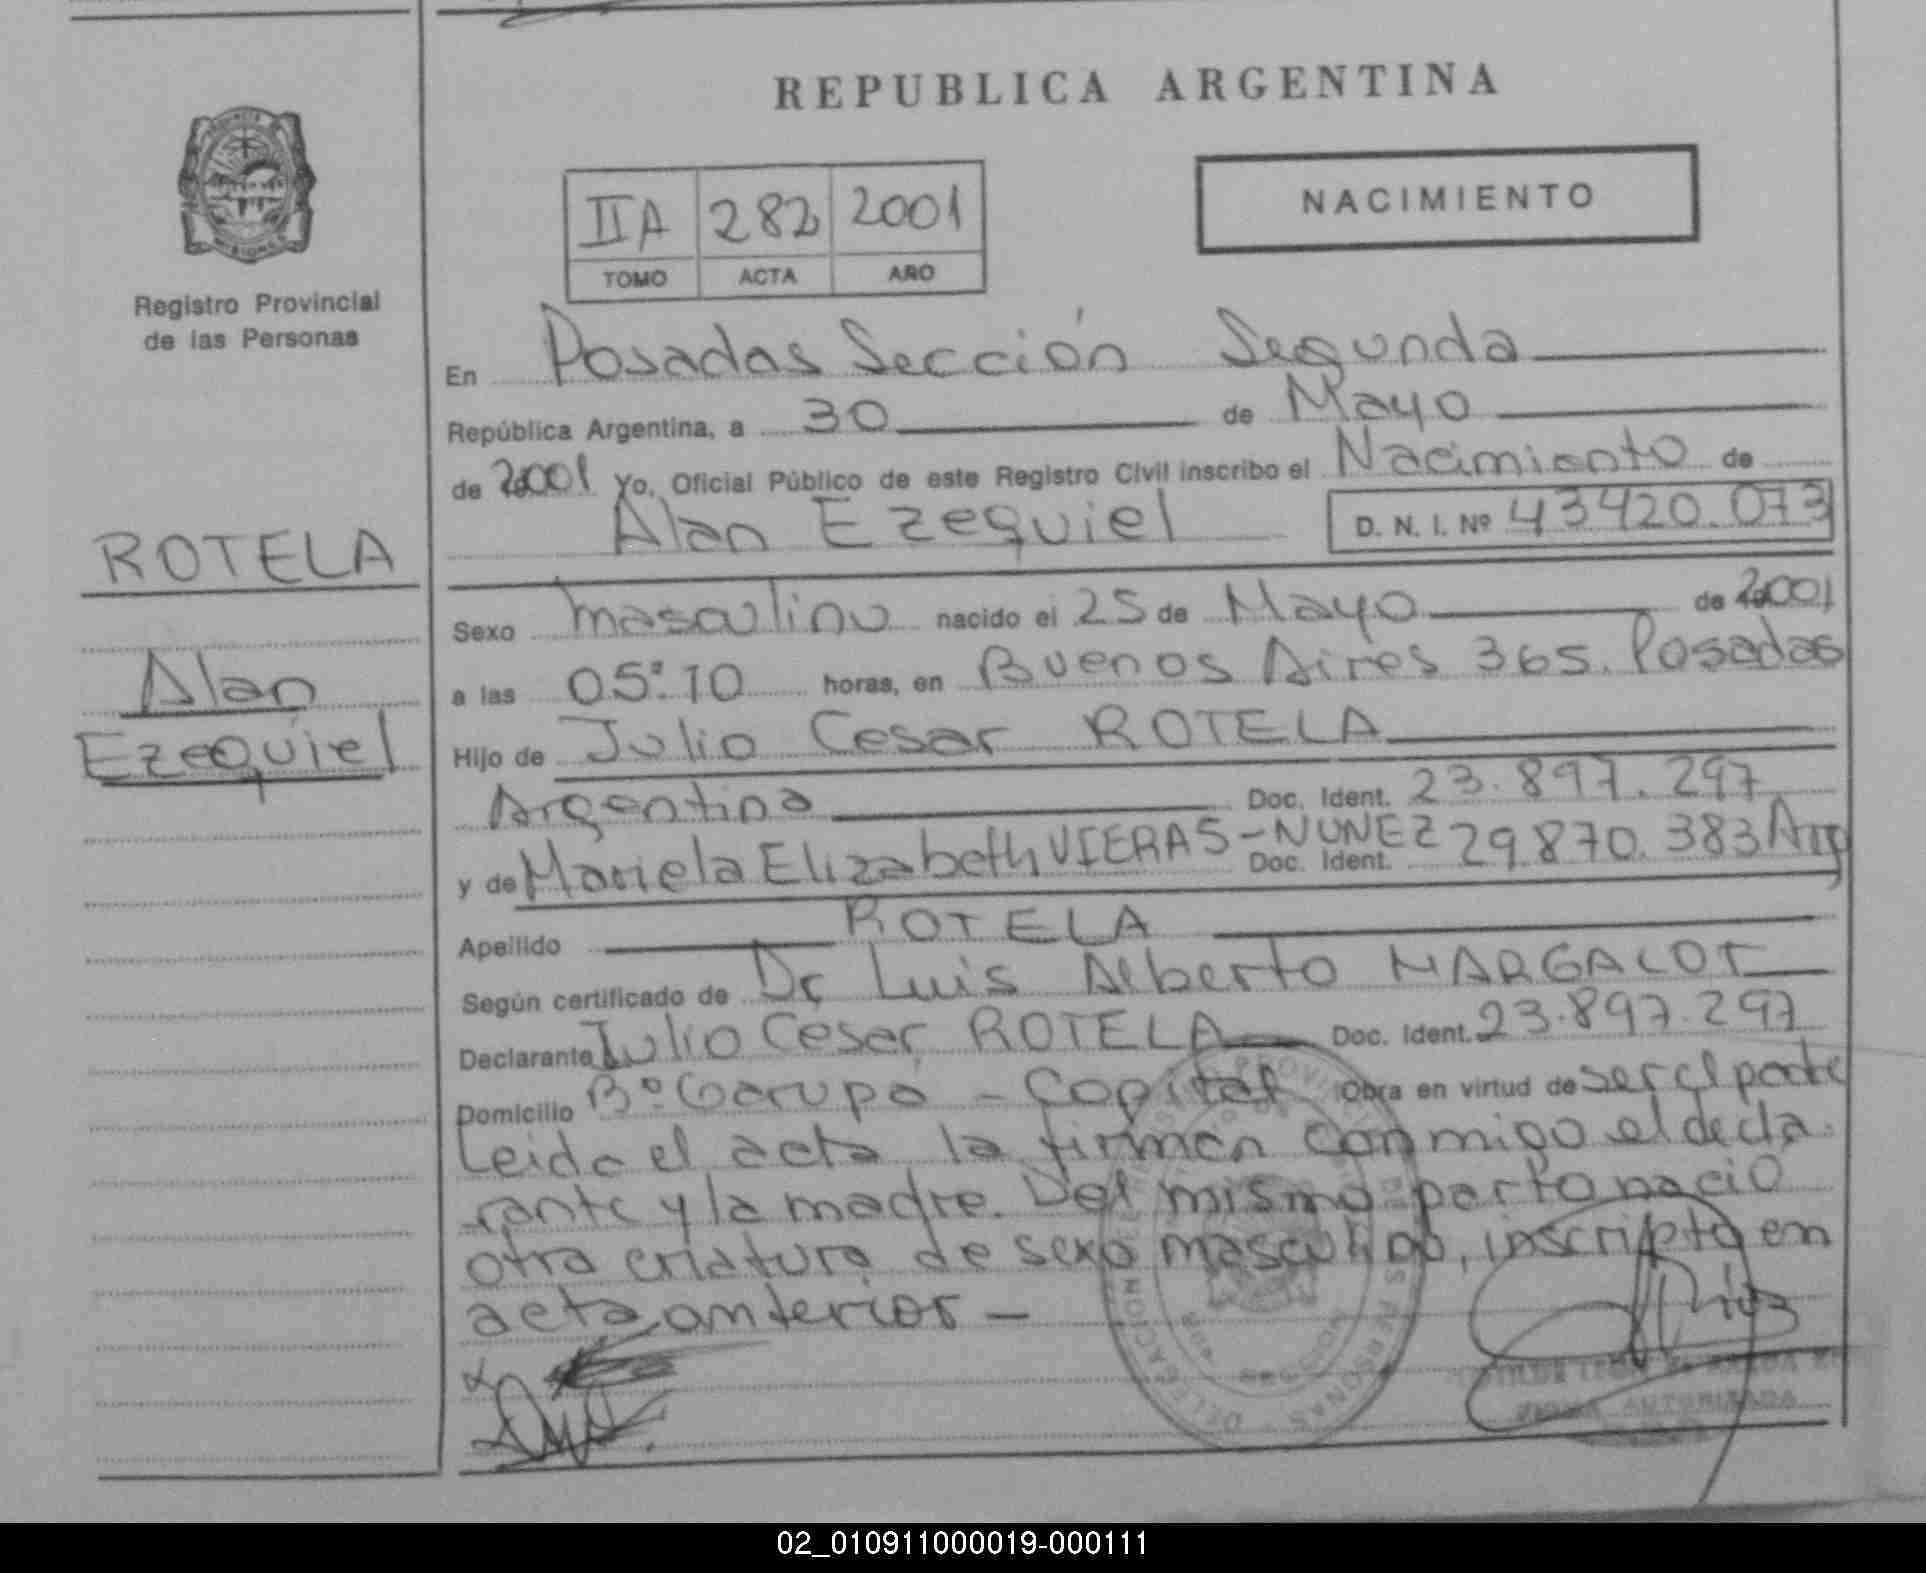 REPUBLICA ARGENTINA
NACIMIENTO
IIA 282 2001
TOMO ACTA AÑO
Registro Provincial
de las Personas
ROTELA
Alan
Ezequiel
En Posadas Sección Segunda
República Argentina, a 30 de Mayo
de 2001 Yo, Oficial Público de este Registro Civil inscribo el Nacimiento de
Alan Ezequiel D. N. I. Nº 43420.073
Sexo masculino nacido el 25 de Mayo de 2001
a las 05:10 horas, en Buenos Aires 365. Posadas
Hijo de Julio Cesar ROTELA
Argentino Doc. Ident. 23.897.297
y de Mariela Elizabeth VIERAS-NUNEZ Doc. Ident. 29.870.383 Arg
Apellido ROTELA
Según certificado de Dr Luis Alberto MARGALOT
Declarante Julio Cesar ROTELA Doc. Ident. 23.897.297
Domicilio Bº Garupa - Capital Obra en virtud de ser el padre
Leida el acta la firman conmigo el decla-
rante y la madre. Del mismo parto nació
otra criatura de sexo masculino, inscripta en
acta anterior -
FIRMA AUTORIZADA
02_010911000019-000111